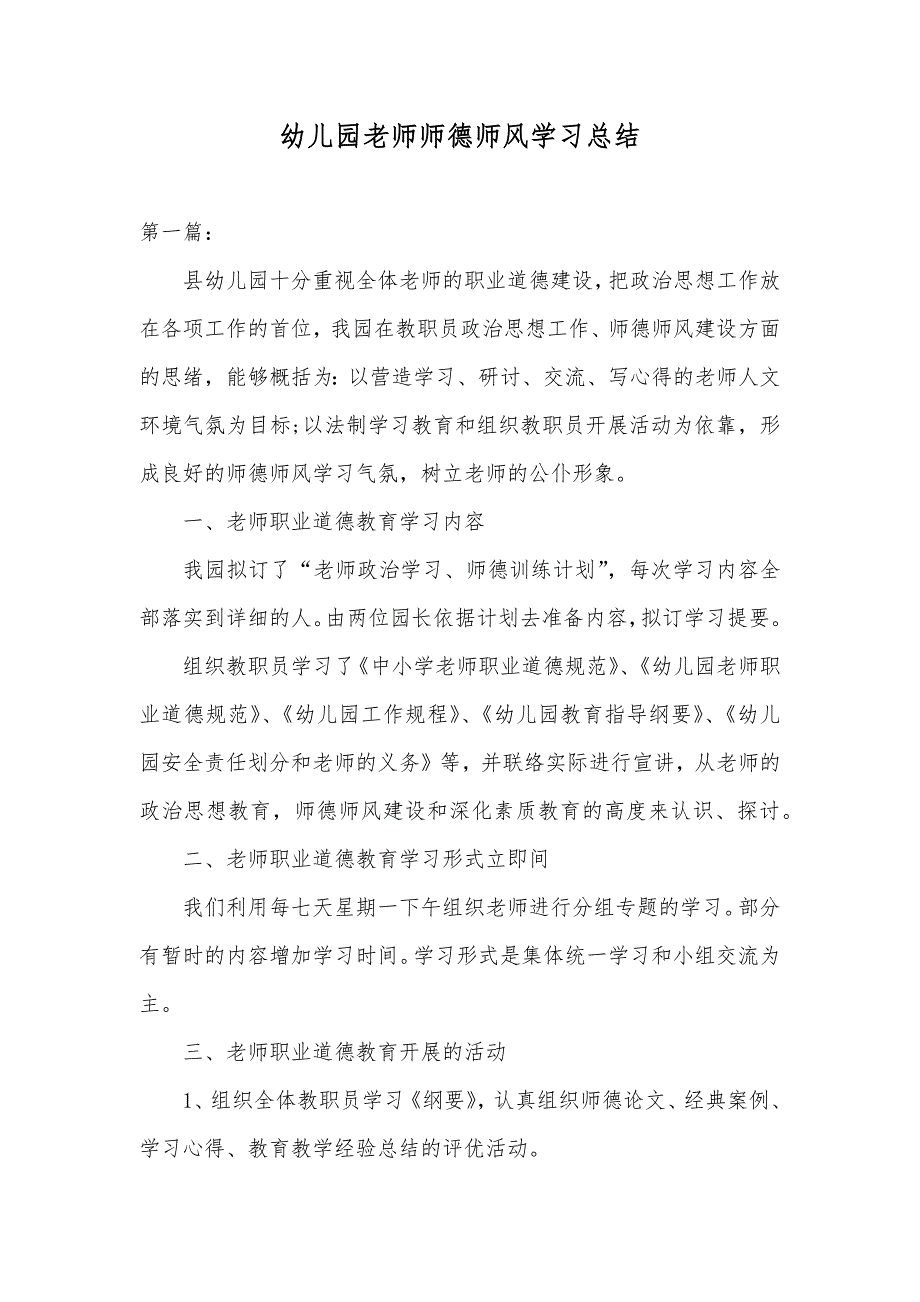 幼儿园老师师德师风学习总结
第一篇：
县幼儿园十分重视全体老师的职业道德建设，把政治思想工作放
在各项工作的首位，我园在教职员政治思想工作、师德师风建设方面
的思绪，能够概括为：以营造学习、研讨、交流、写心得的老师人文
环境气氛为目标;以法制学习教育和组织教职员开展活动为依靠，形
成良好的师德师风学习气氛，树立老师的公仆形象。
一、老师职业道德教育学习内容
我园拟订了“老师政治学习、师德训练计划”，每次学习内容全
部落实到详细的人。由两位园长依据计划去准备内容，拟订学习提要。
组织教职员学习了《中小学老师职业道德规范》、《幼儿园老师职
业道德规范》、《幼儿园工作规程》、《幼儿园教育指导纲要》、《幼儿
园安全责任划分和老师的义务》等，并联络实际进行宣讲，从老师的
政治思想教育，师德师风建设和深化素质教育的高度来认识、探讨。
二、老师职业道德教育学习形式立即间
我们利用每七天星期一下午组织老师进行分组专题的学习。部分
有暂时的内容增加学习时间。学习形式是集体统一学习和小组交流为
主。
三、老师职业道德教育开展的活动
1、组织全体教职员学习《纲要》，认真组织师德论文、经典案例、
学习心得、教育教学经验总结的评优活动。